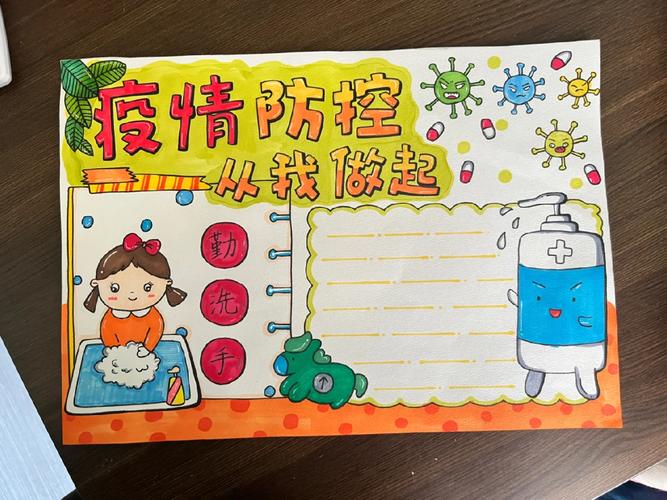 疫情防控
从我做起
勤
洗
手